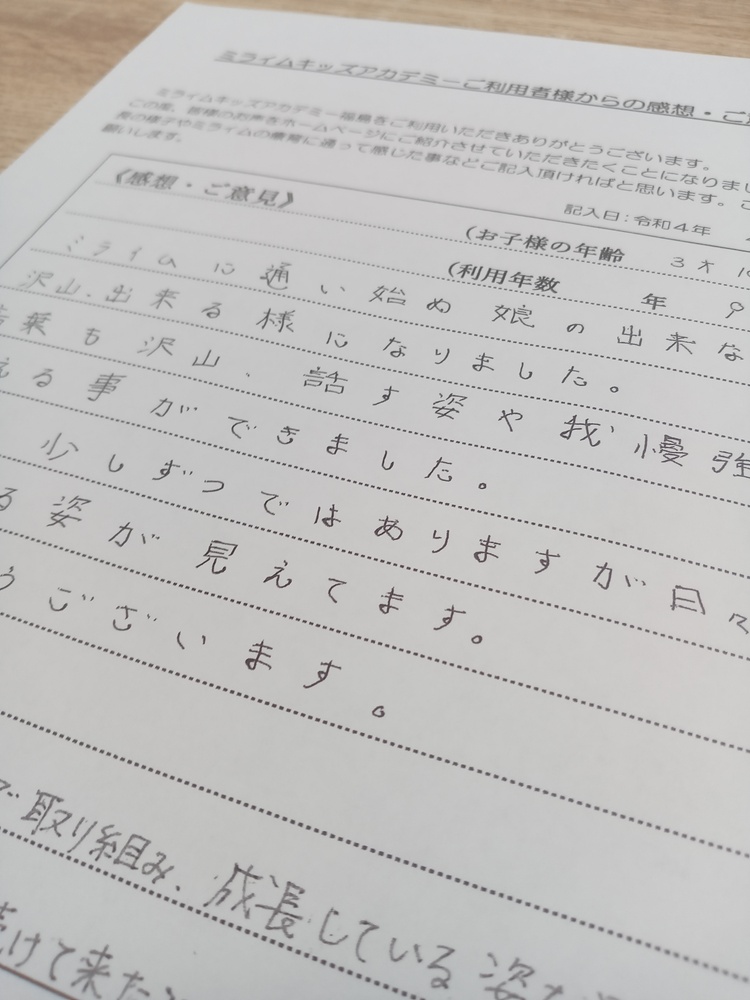 ミライムキッズアカデミーご利用者様からの感想・ご
ミライムキッズアカデミー福島をご利用いただきありがとうございます。
この度、皆様のお声をホームページにご紹介させていただきたくことになりまし
長の様子やミライムの療育に通って感じた事などご記入頂ければと思います。こ
願いします。
記入日:令和4年
《感想・ご意見》
(お子様の年齢 3才 10
(利用年数 年 9
ミライムに通い始め娘の出来な
沢山、出来る様になりました。
言葉も沢山、話す姿や我慢強
える事ができました。
少しずつではありますが日々
る姿が見えてます。
うございます。
で取り組み、成長している姿を
続けて来た